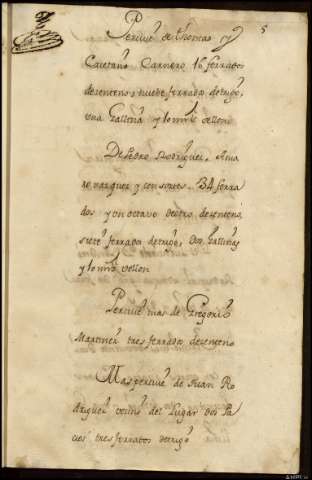 5
Percive de thomas y
Caietano Carnero 16 ferrados
de senteno, nuebe ferrados de trigo,
una Gallina y
vellon
De Pedro Rodriguez,
vazquez y consortes 34 ferra
dos y un octavo de otro de senteno,
siete ferrados de trigo, Dos Gallinas
y
vellon
Percive mas de Gregorio
Martinez tres ferrados de senteno
Mas percive de Juan Ro
driguez vecino del Lugar dos Pa
tres ferrados de trigo